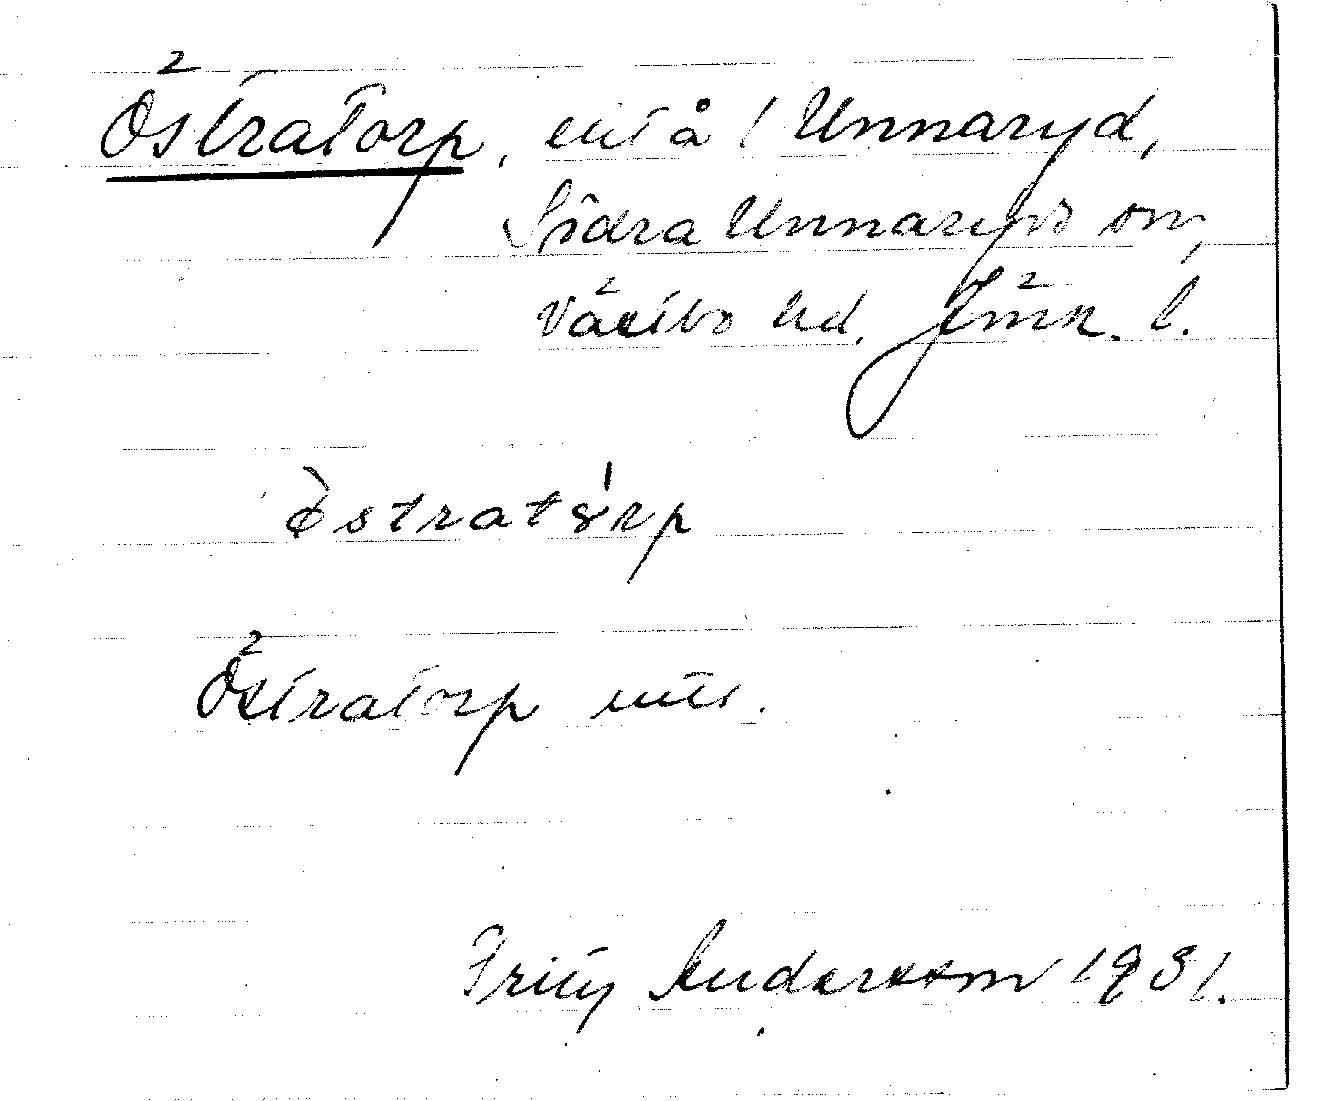 Östratorp, ent å 1 Unnaryd,
Södra Unnaryds sn,
Västbo hd. Jönk. l.
östratörp
Östratorp
Fritz Andersson 1931.